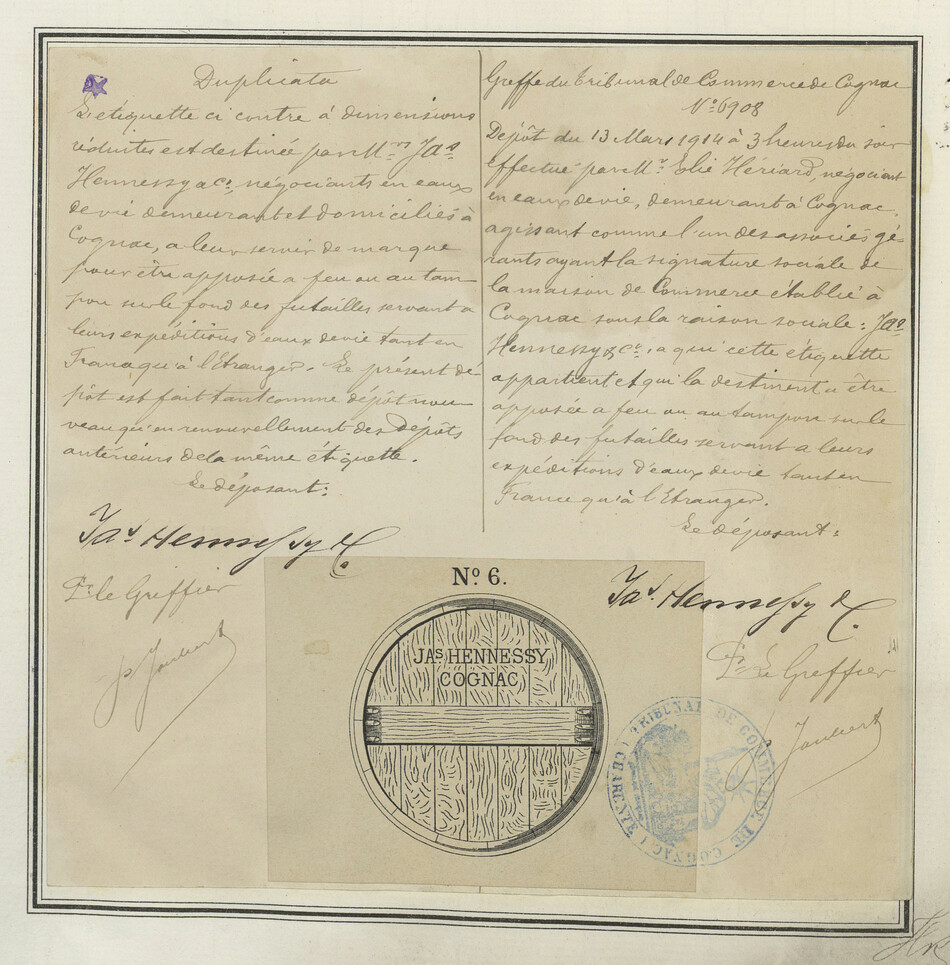 Duplicata
L'étiquette ci contre à dimensions
réduites est destinée par MM.rs Jas
Hennessy & Co, négociants en eaux
de vie demeurant et domiciliés à
Cognac, a leur servir de marque
pour être apposée a feu ou au tam-
pon sur le fond des futailles servant a
leurs expéditions d'eaux de vie tant en
France qu'à l'Etranger. Le présent dé-
pôt est fait tant comme dépôt nou
veau qu'en renouvellement des dépôts
antérieurs de la même étiquette.
Le déposant:
Jas Hennessy & C.
Pr le Greffier
P. Joubert
Greffe du Tribunal de Commerce de Cognac
No 6908
Dépôt du 13 Mars 1914 à 3 heures du soir
effectué par Mr Elie Hériard, négociant
en eaux de vie, demeurant à Cognac,
agissant comme l'un des associés gé-
rants ayant la signature sociale de
la maison de Commerce établie à
Cognac sous la raison sociale: Jas
Hennessy & Co. a qui cette étiquette
appartient et qui la destinent a être
apposée a feu ou au tampon sur le
fond des futailles servant a leurs
expéditions d'eaux de vie tant en
France qu'à l'Etranger.
Le déposant:
Jas. Hennessy & C.
Pr Le Greffier
Joubert
No 6.
JAS HENNESSY
COGNAC
TRIBUNAL DE COMMERCE DE COGNAC (CHARENTE)